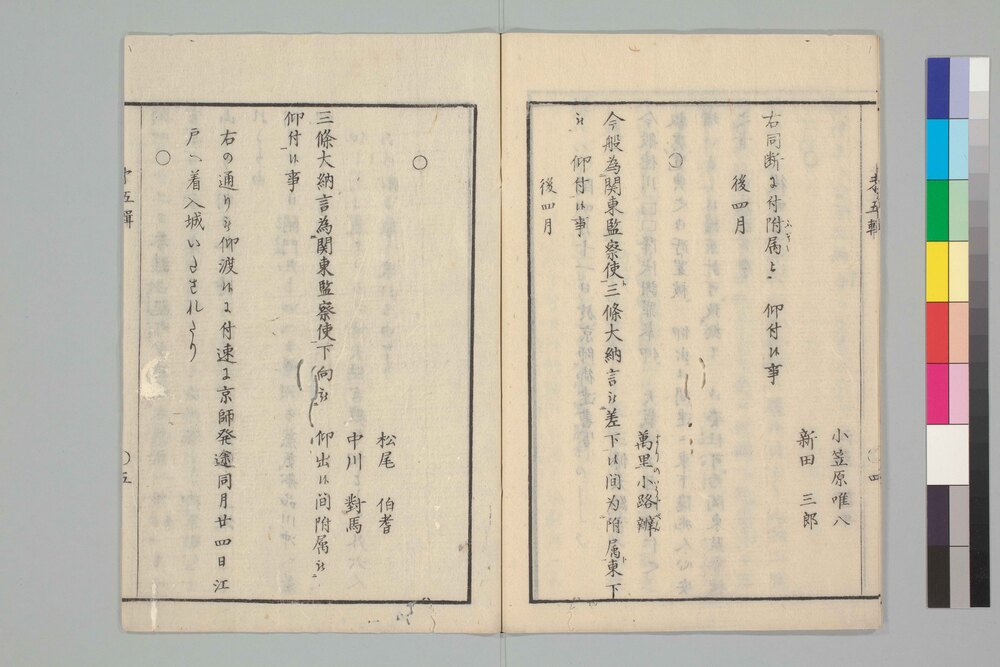 小笠原唯八
新田　三郎
右同断ニ付附属被　仰付候事
後四月
○
萬里小路辨
今般為関東監察使三條大納言被差下候间为附属東下
被　仰付候事
後四月
○四
○
松尾　伯耆
中川　對馬
三條大納言為関東監察使下向被　仰出候间附属被
仰付候事
右の通り被仰渡候に付速に京師発途同月廿四日江
戸へ着入城いたされたり
○
○五